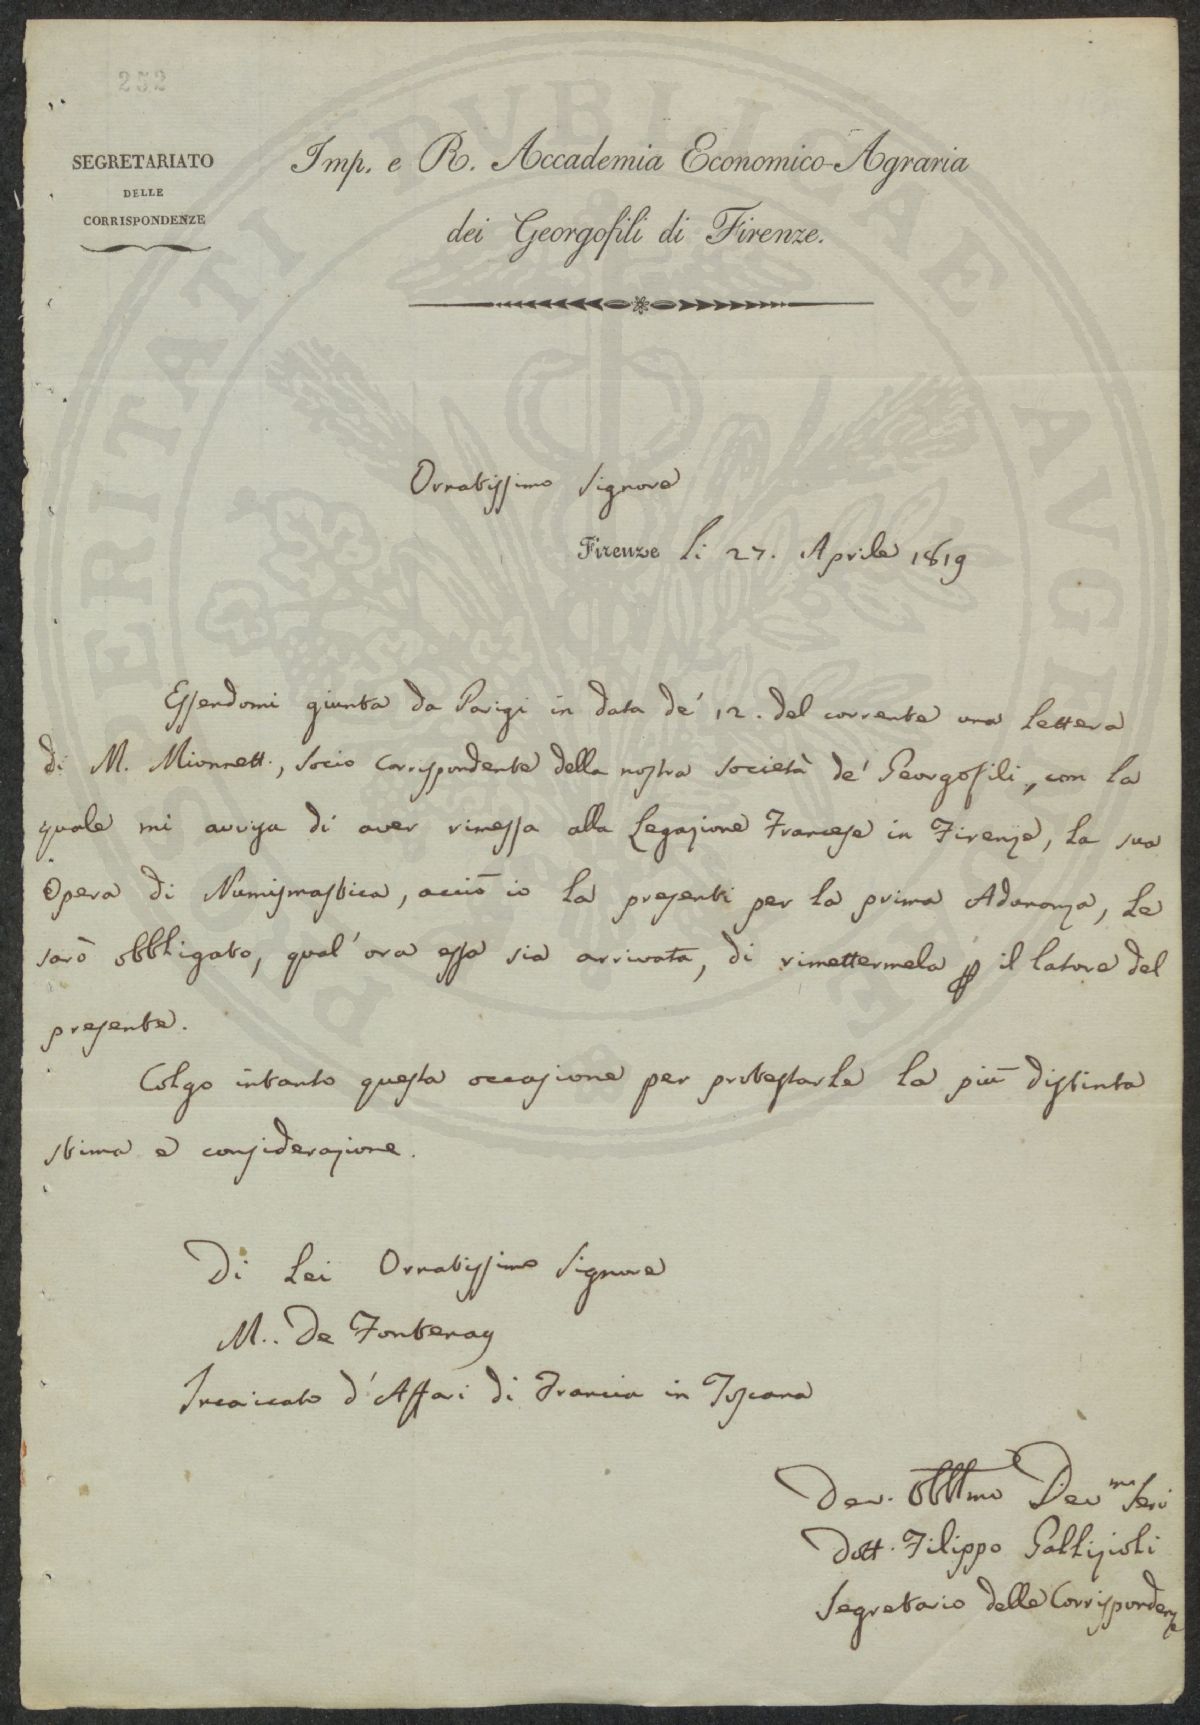 252
SEGRETARIATO
DELLE
CORRISPONDENZE
Imp. e R. Accademia Economico-Agraria
dei Georgofili di Firenze.
PROSPERITATI PUBLICAE AUGENDAE
Ornatissimo Signore
Firenze li 27. Aprile 1819
Essendomi giunta da Parigi in data de' 12. del corrente una lettera
di M. Mionnett., Socio Corrispondente della nostra Società de' Georgofili, con la
quale mi avvisa di aver rimessa alla Legazione Francese in Firenze, la sua
Opera di Numismastica, acciò io la presenti per la prima Adunanza, Le
sarò obbligato, qual'ora essa sia arrivata, di rimettermela p il latore del
presente.
Colgo intanto questa occasione per protestarle la più distinta
stima e considerazione.
Di Lei Ornatissimo Signore
M.. De Fontenay
Incaicato d'Affari di Francia in Toscana
Dev. Obblmo Devmo Ser
Dott. Filippo Gallizioli
Segretario delle Corrispondenze